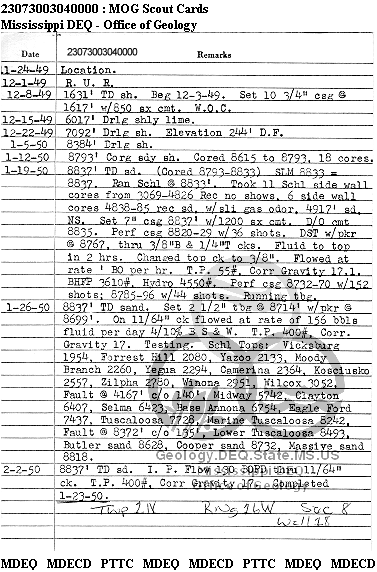 23073003040000 : MOG Scout Cards
Mississippi DEQ - Office of Geology
Date 23073003040000 Remarks
1-24-49 Location.
12-1-49 R. U. R.
12-8-49 1631' TD sh. Beg 12-3-49. Set 10 3/4" csg @
1617' w/850 sx cmt. W.O.C.
12-15-49 6017' Drlg shly lime.
12-22-49 7092' Drlg sh. Elevation 244' D.F.
1-5-50 8384' Drlg sh.
1-12-50 8793' Corg sdy sh. Cored 8615 to 8793, 18 cores.
1-19-50 8837' TD sd. (Cored 8793-8833) SLM 8833 =
8837. Ran Schl @ 8833'. Took 11 Schl side wall
cores from 3069-4826 Rec no shows, 6 side wall
cores 4838-85 rec sd, w/sli gas odor, 4917' sd,
NS. Set 7" csg 8837' w/1200 sx cmt. D/O cmt
8835. Perf csg 8820-29 w/36 shots. DST w/pkr
@ 8767, thru 3/8"B & 1/4"T cks. Fluid to top
in 2 hrs. Changed top ck to 3/8". Flowed at
rate ' BO per hr. T.P. 55#. Corr Gravity 17.1.
BHFP 3610#. Hydro 4550#. Perf csg 8732-70 w/152
shots; 8785-96 w/44 shots. Running tbg.
1-26-50 8837' TD sand. Set 2 1/2" tbg @ 8714' w/pkr @
8699'. On 11/64" ck flowed at rate of 156 bbls
fluid per day 4/10% B S & W. T.P. 400#, Corr.
Gravity 17. Testing. Schl Tops: Vicksburg
1954, Forrest Hill 2080, Yazoo 2133, Moody
Branch 2260, Yegua 2294, Camerina 2364, Kosciusko
2557, Zilpha 2780, Winona 2951, Wilcox 3052,
Fault @ 4167' c/o 140', Midway 5742, Clayton
6407, Selma 6423, Base Annona 6754, Eagle Ford
7437, Tuscaloosa 7728, Marine Tuscaloosa 8242,
Fault @ 8372' c/o 135', Lower Tuscaloosa 8493,
Butler sand 8628, Cooper sand 8732, Massive sand
8818.
Geology.DEQ.State.MS.US
2-2-50 8837' TD sd. I. P. Flow 130 BOPD thru 11/64"
ck. T.P. 400#, Corr Gravity 17. Completed
1-23-50.
Twp 2N Rng 16W Sec 8
Well 18
MDEQ MDECD PTTC MDEQ MDECD PTTC MDEQ MDECD